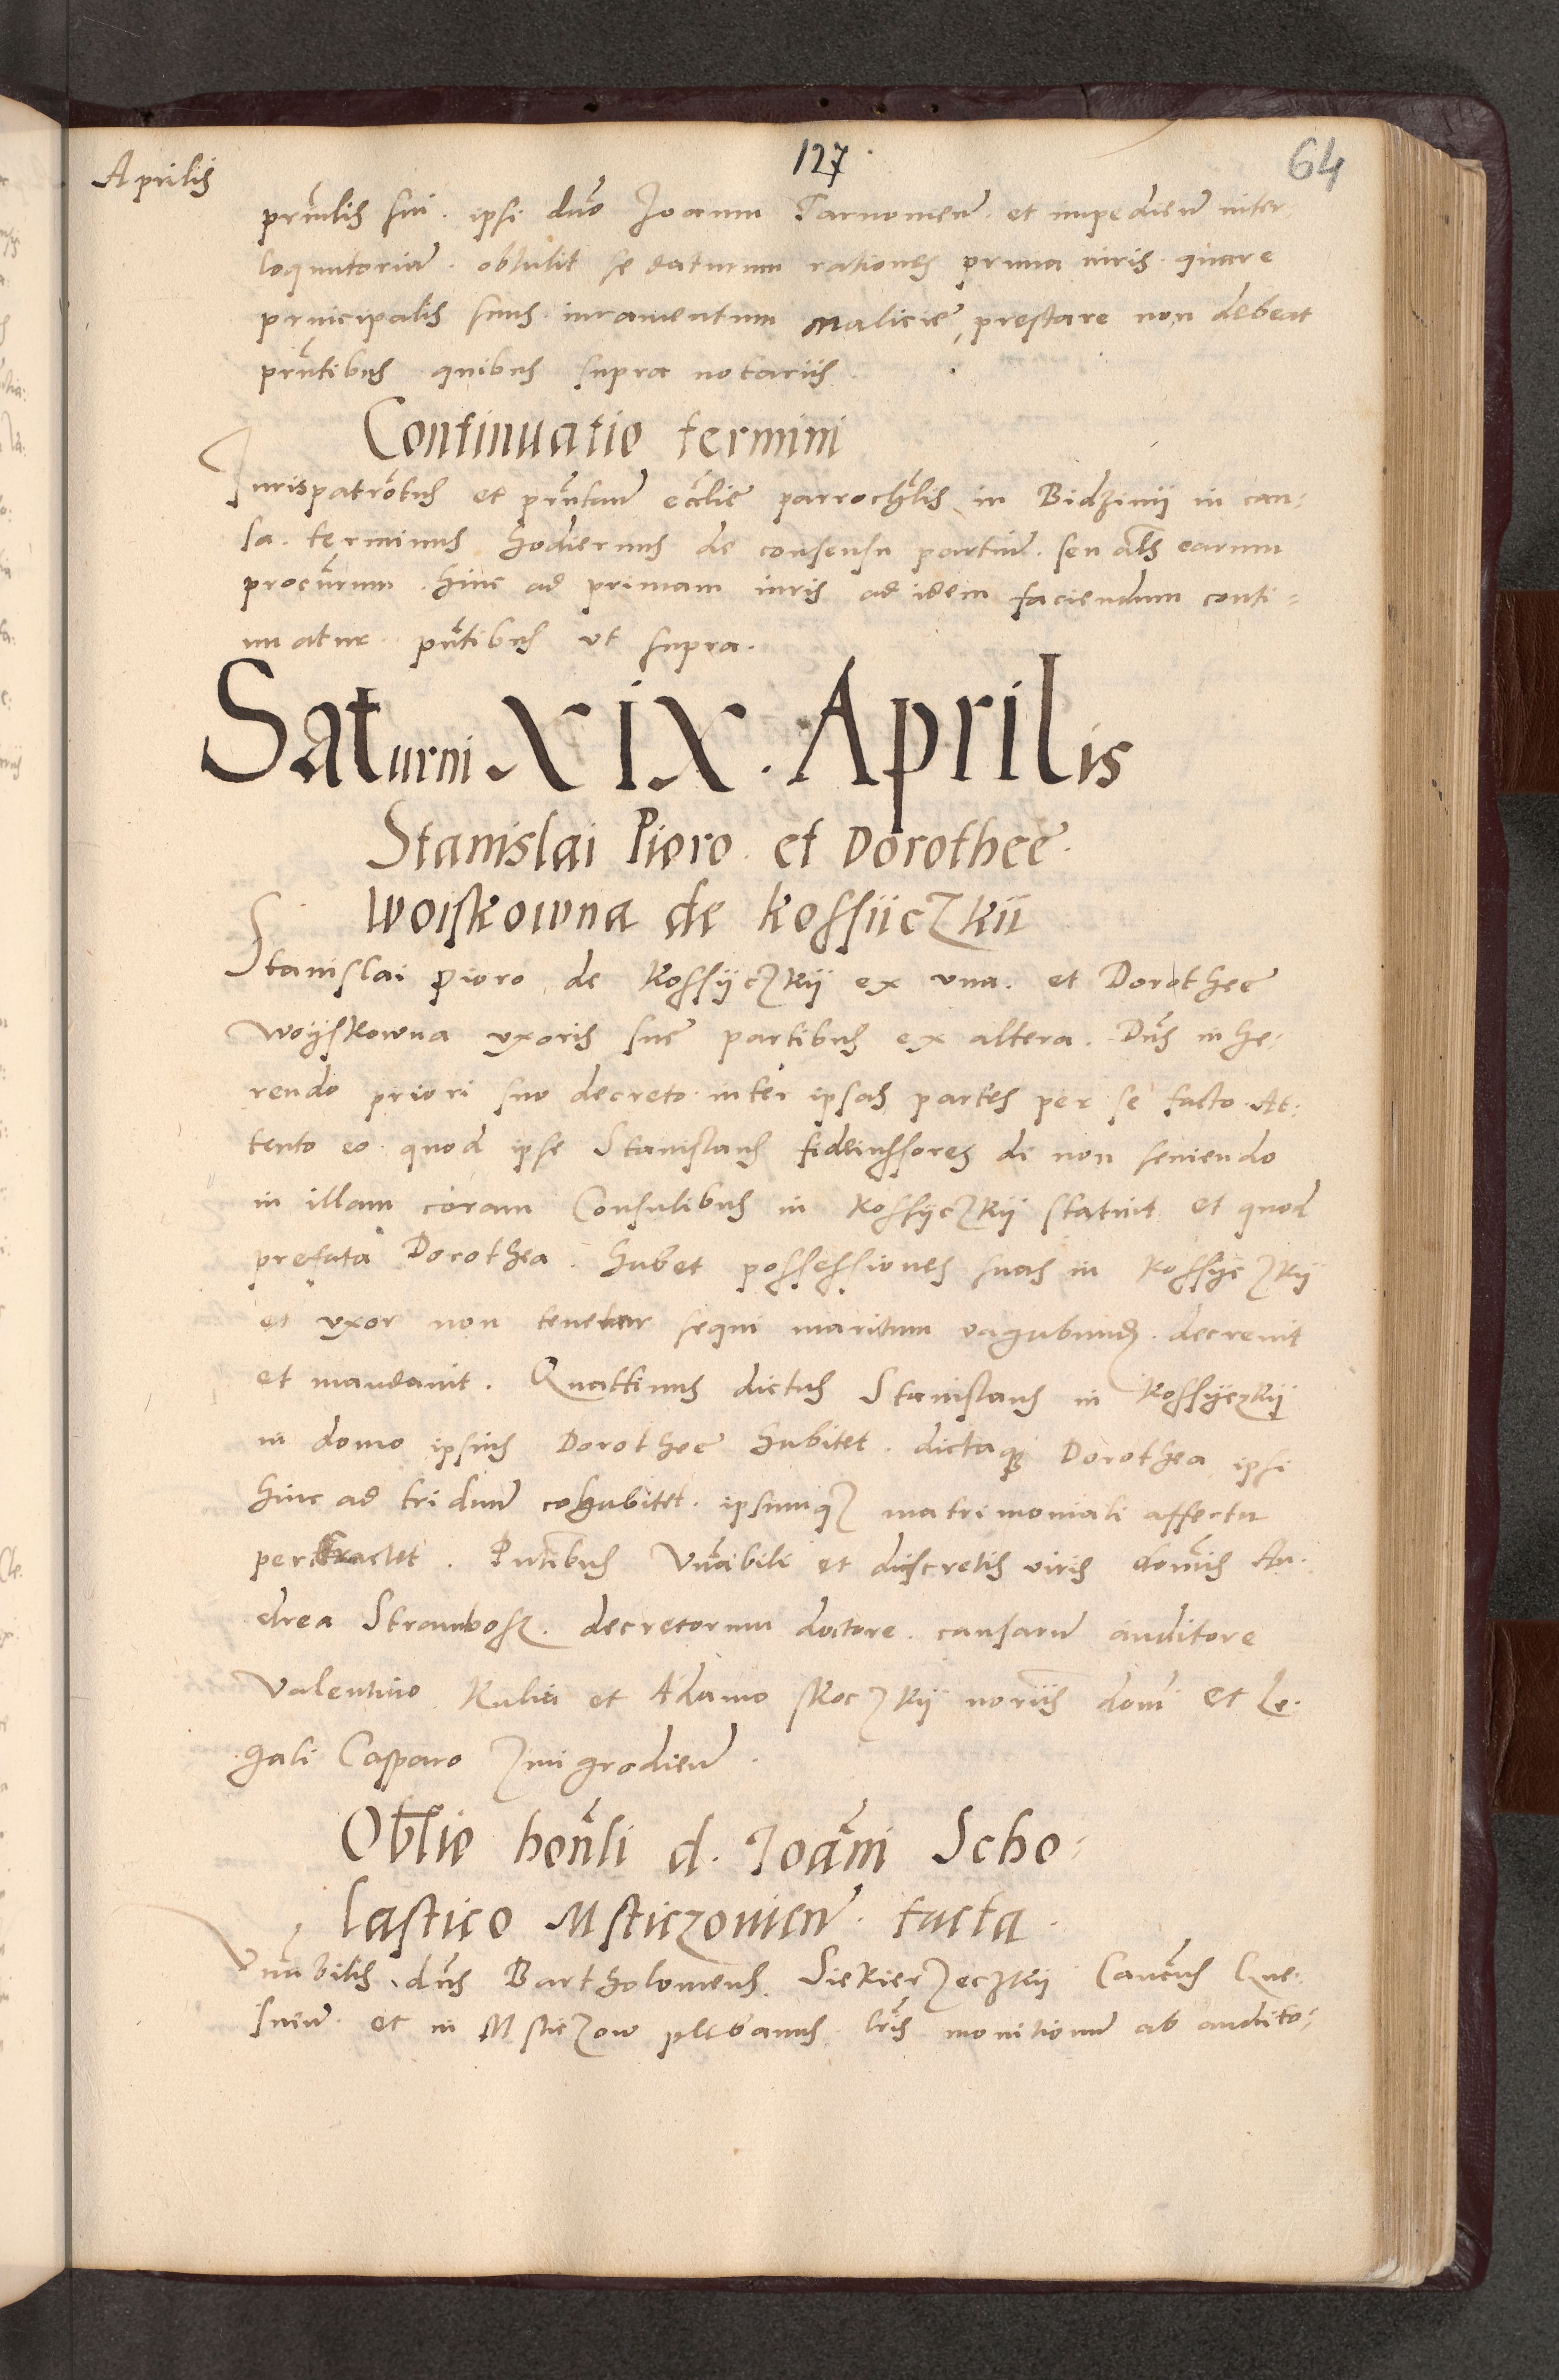 127
64
Aprilis
prinlis sui. ipsi dno Joanni Tarnowien. et impedien inter
loquutoriam. obtulit se daturum rationes prima iuris. quare
principalis suus iuramentum malicie prestare non debeat
pntibus quibus supra notariis
Continuatio termini
Jurispatrotus et pntan ecclie parrochlis in Bidzinij in cau-
sa. terminus hodiernus de consensu partium. seu als earum
procurum. hinc ad primam iuris ad idem faciendum conti-
nuatur. pntibus vt supra.
Saturni XIX. Aprilis
Stanislai Pioro. et Dorothee.
Woiskowna de Kossiiczkii
Stanislai Pioro de Kossijczkij ex vna. et Dorothee
Woijskowna vxoris sue partibus ex altera. Dns inhe-
rendo priori suo decreto inter ipsas partes per se facto. At-
tento eo quod ipse Stanislaus fideiussores de non seuiendo
in illam coram Consulibus in Kossijczkij statuit et quod
prefata Dorothea. habet possessiones suas in Kossijczkij
et vxor non tenetur sequi maritum vagabund. decreuit
et mandauit. Quattinus dictus Stanislaus in Kossijczkij
in domo ipsius Dorothee habitet. dictaq Dorothea ipsi
hinc ad triduum cohabitet. ipsumq matrimoniali affectu
pertractet. Pntibus Vnabili et discretis viris domis An-
drea Strambosz. decretorum doctore. causarum auditore
Valentino Kulia et Adamo Skoczkij noriis domi et Le-
gali Casparo Zmigrodien.
Oblie honli d. Joanni Scho-
lastico Msticzouien. facta.
Vnabilis dns Bartholomeus Siekierzeczkij Cancus Gne-
snen. et in Msticzow plebanus. lris monitionum ab audito-